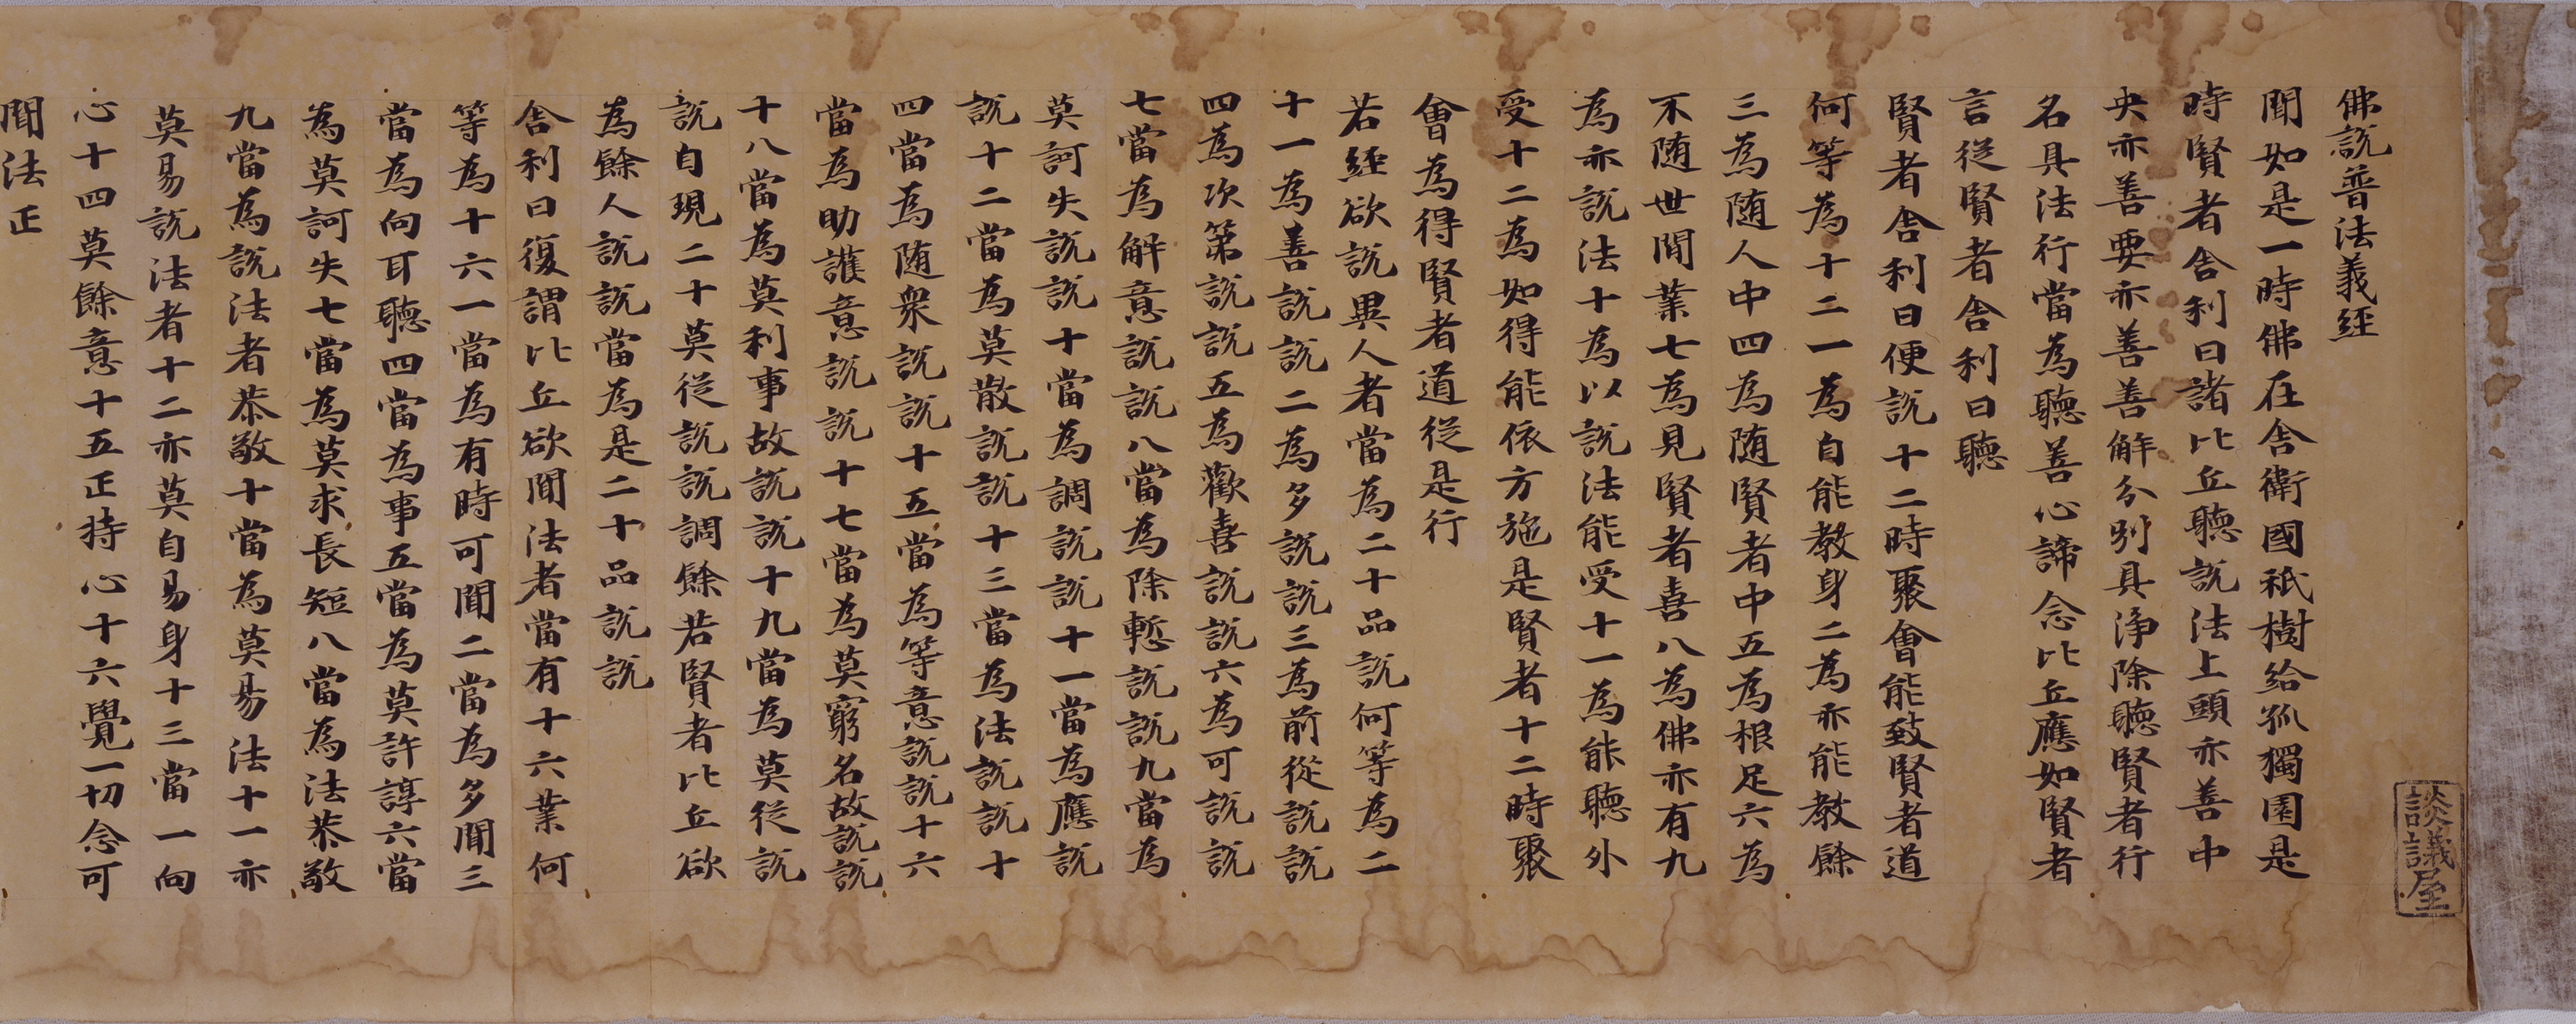 佛說普法義經
聞如是一時佛在舍衛國祇樹給孤獨園是
時賢者舍利曰諸比丘聽說法上頭亦善中
央亦善要亦善善解分別具淨除聽賢者行
名具法行當為聽善心諦念比丘應如賢者
言從賢者舍利曰聽
賢者舍利曰便說十二時聚會能致賢者道
何等為十二一為自能教身二為亦能教餘
三為随人中四為随賢者中五為根足六為
不随世間業七為見賢者喜八為佛亦有九
為亦說法十為以說法能受十一為能聽外
受十二為如得能依方施是賢者十二時聚
會為得賢者道從是行
若經欲說異人者當為二十品說何等為二
十一為善說說二為多說說三為前從說說
四為次第說說五為歡喜說說六為可說說
七當為解意說說八當為除慙說說九當為
莫訶失說說十當為調說說十一當為應說
說十二當為莫散說說十三當為法說說十
四當為随衆說說十五當為等意說說十六
當為助護意說說十七當為莫窮名故說說
十八當為莫利事故說說十九當為莫從說
說自現二十莫從說說調餘若賢者比丘欲
為餘人說說當為是二十品說說
舍利曰復謂比丘欲聞法者當有十六業何
等為十六一當為有時可聞二當為多聞三
當為向耳聽四當為事五當為莫許諄六當
為莫訶失七當為莫求長短八當為法恭敬
九當為說法者恭敬十當為莫易法十一亦
莫易說法者十二亦莫自易身十三當一向
心十四莫餘意十五正持心十六覺一切念可
聞法正
談議屋